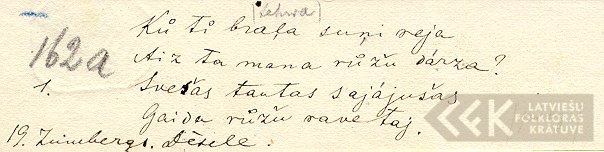 (Lehwa)
Ků tŏ braļa suņi reja
162a
Aiz ta mana růžu dárza?
1.
Svešas tautas sajájušas
Gaida růžu ravetaj.
19. Zúmbergs. Dēsele.
LATVIEŠU
FOLKLORAS
KRĀTUVE
LFK